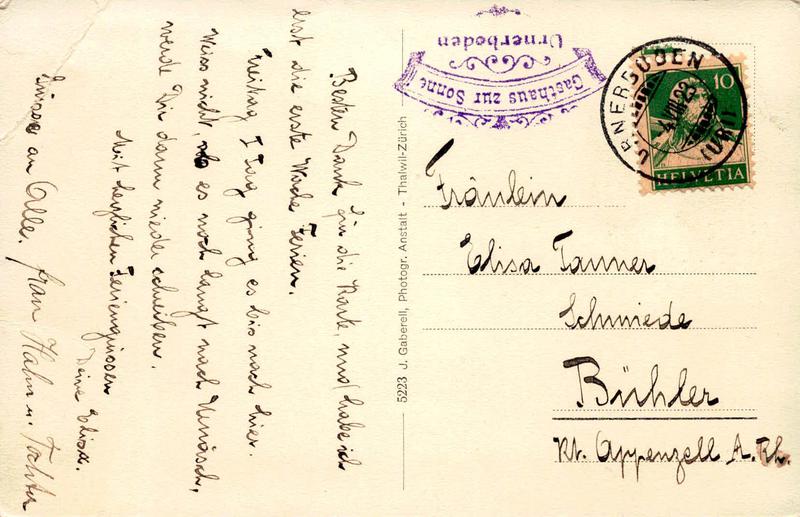 Besten Dank für die Karte, und habe ich
erst die erste Woche Ferien.
Freitag 1 Tag ging es bis nach hier.
Weiss nicht, ob es noch langt nach Urnäsch,
werde Dir dann wieder schreiben.
Mit herzlichen Feriengrüssen
Deine Elise.
Grüsse an Alle. Frau Hahn u. Tochter
5223 J. Gaberell, Photogr. Anstalt - Thalwil-Zürich
Gasthaus zur Sonne
Urnerboden
URNERBODEN
(URI)
10
HELVETIA
Fräulein
Elisa Tanner
Schmiede
Bühler
Kt. Appenzell A. Rh.